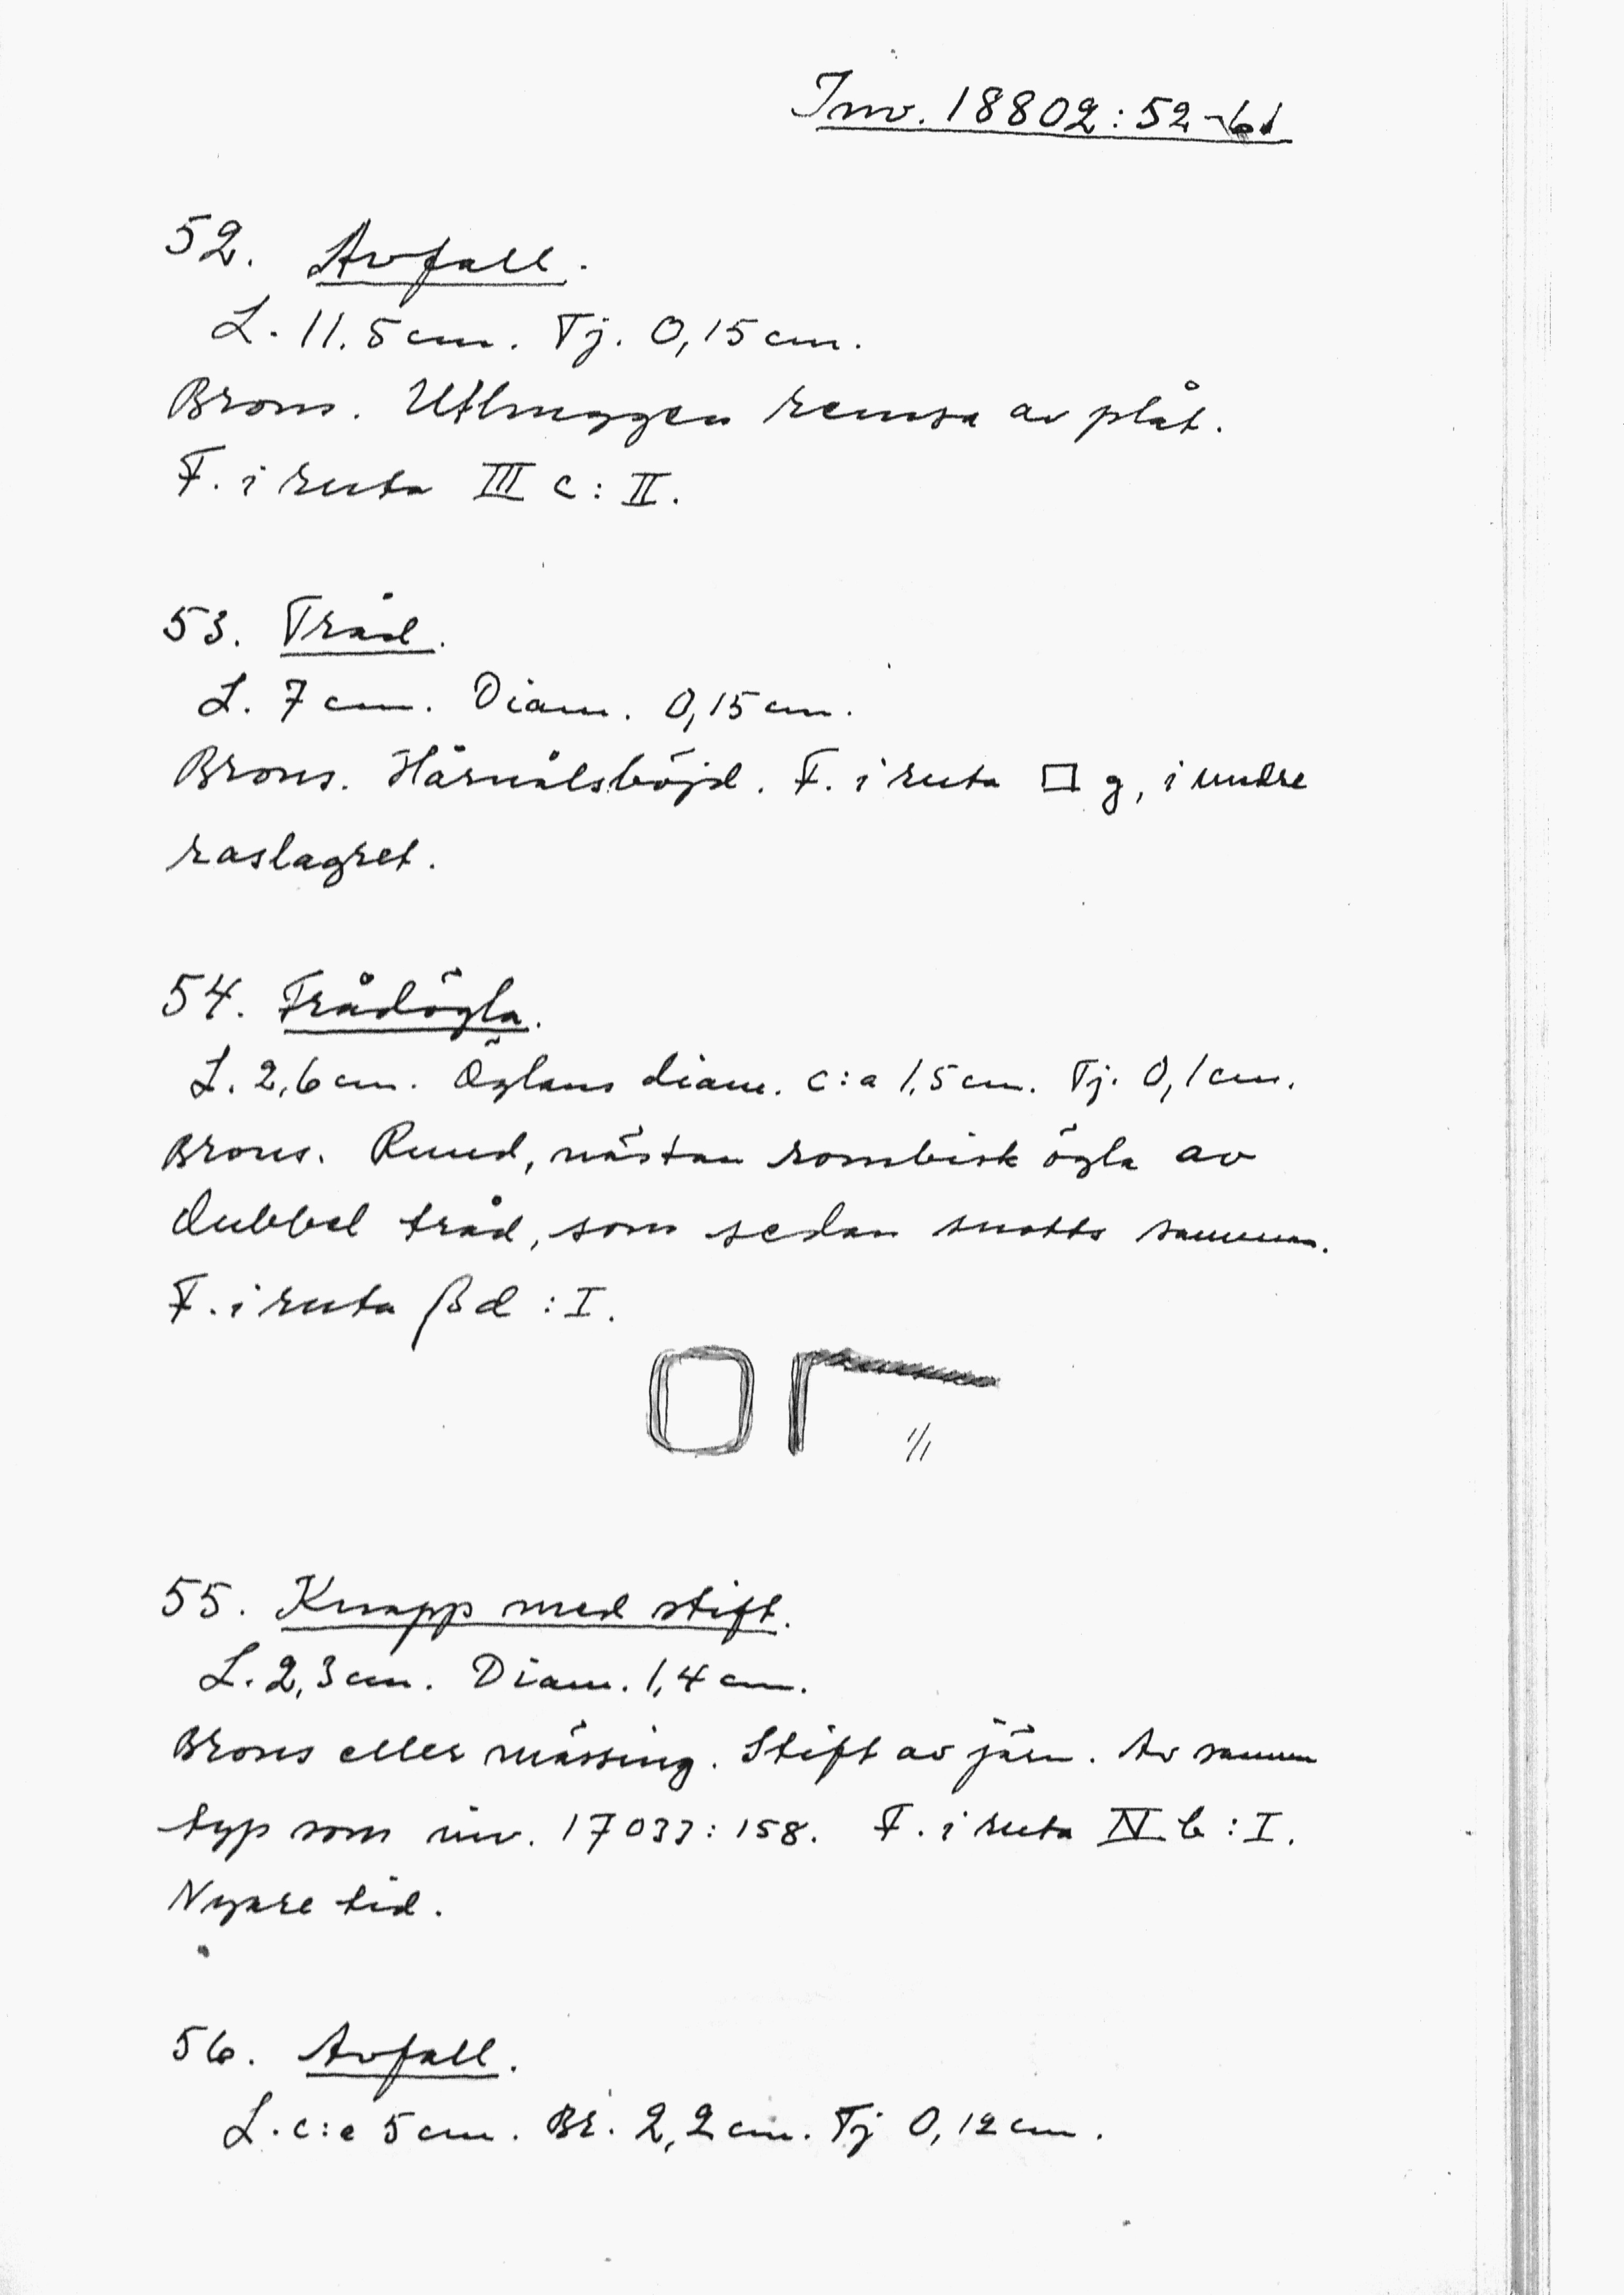 Inv. 18802:52-61
52. Avfall.
L. 11.5 cm. Tj. 0,15 cm.
Brons. Uthuggen remsa av plåt.
F. i ruta III c: II.
53. Tråd.
L. 7 cm. Diam. 0,15 cm.
Brons. Hårnålsböjd. F. i ruta □ g, i undre
raslagret.
54. Trådögla.
L. 2,6 cm. Öglans diam. c:a 1,5 cm. Tj. 0,1 cm.
Brons. Rund, nästan rombisk ögla av
dubbel tråd, som sedan snotts samman.
F. i ruta β d : I.
1/1
55. Knapp med stift.
L. 2,3 cm. Diam. 1,4 cm.
Brons eller mässing. Stift av järn. Av samma
typ som inv. 17033:158. F. i ruta IV b : I.
Nyare tid.
56. Avfall.
L. c:a 5 cm. Br. 2,2 cm. Tj 0,12 cm.